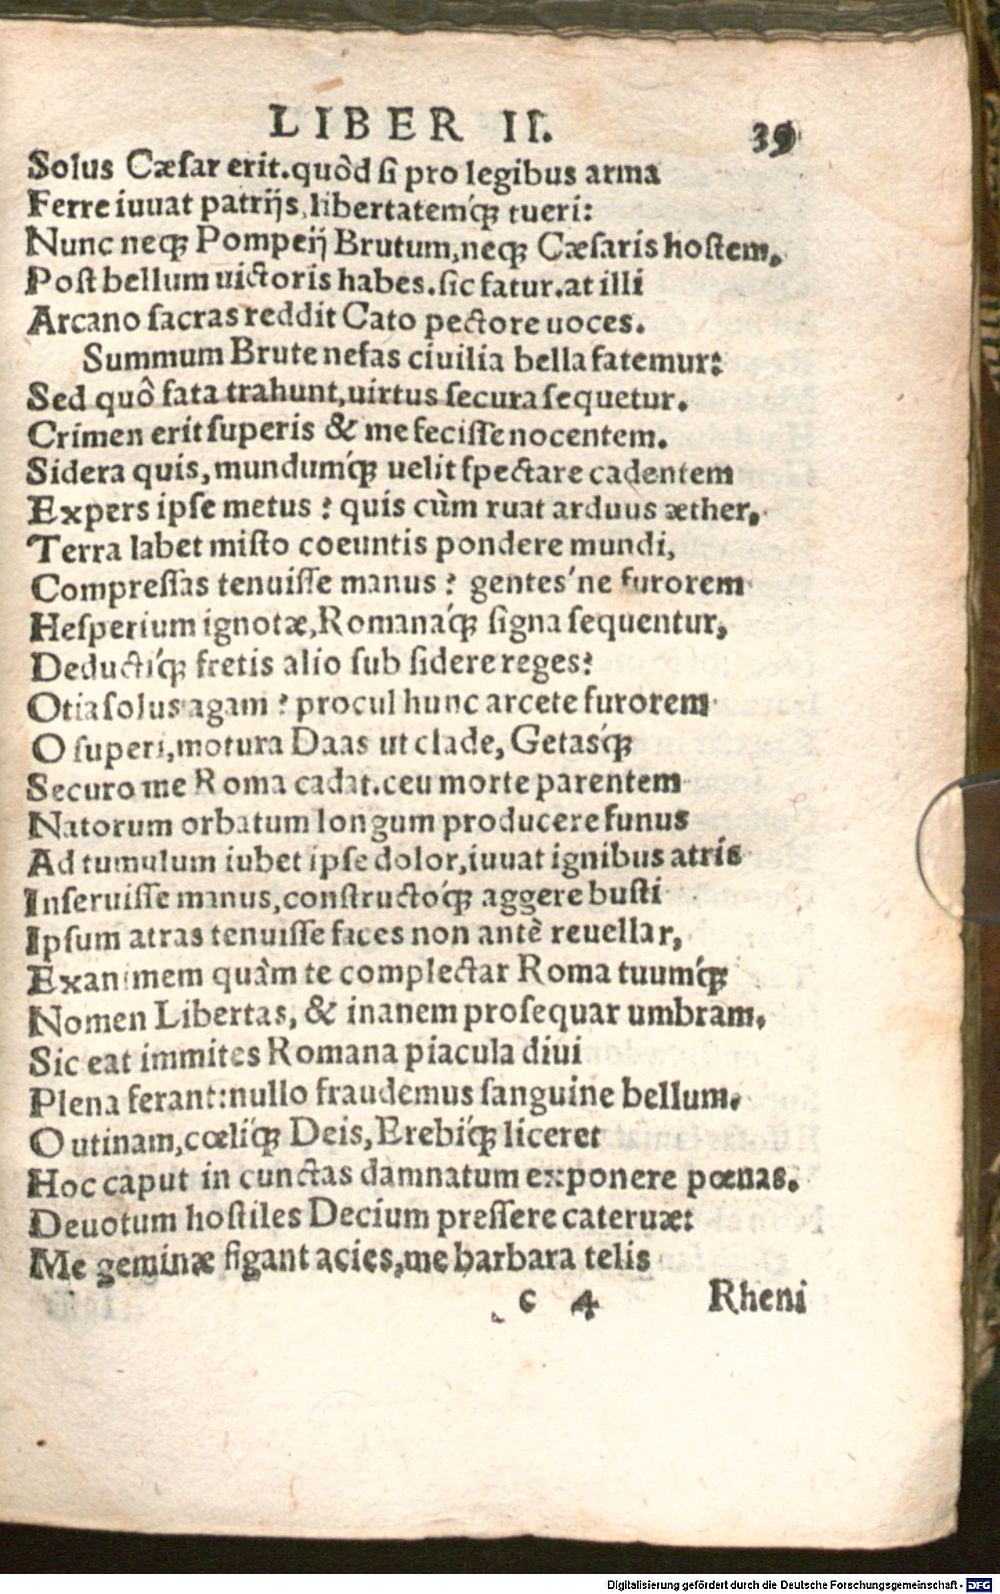 LIBER II. 39
Solus Cæsar erit.quòd si pro legibus arma
Ferre iuuat patrijs,libertatemq́ꝫ tueri:
Nunc neqꝫ Pompeij Brutum,neqꝫ Cæsaris hostem,
Post bellum uictoris habes.sic fatur.at illi
Arcano sacras reddit Cato pectore uoces.
Summum Brute nefas ciuilia bella fatemur:
Sed quô fata trahunt,uirtus secura sequetur.
Crimen erit superis & me fecisse nocentem.
Sidera quis,mundumq́ꝫ uelit spectare cadentem
Expers ipse metus? quis cùm ruat arduus æther,
Terra labet misto coeuntis pondere mundi,
Compressas tenuisse manus? gentes'ne furorem
Hesperium ignotæ,Romanaq́ꝫ signa sequentur,
Deductiq́ꝫ fretis alio sub sidere reges?
Otia solus agam? procul hunc arcete furorem
O superi,motura Daas ut clade, Getasq́ꝫ
Securo me Roma cadat.ceu morte parentem
Natorum orbatum longum producere funus
Ad tumulum iubet ipse dolor,iuuat ignibus atris
Inseruisse manus,constructoq́ꝫ aggere busti
Ipsum atras tenuisse faces non antè reuellar,
Exanimem quàm te complectar Roma tuumq́ꝫ
Nomen Libertas, & inanem prosequar umbram.
Sic eat immites Romana piacula diui
Plena ferant:nullo fraudemus sanguine bellum.
O utinam,cœliq́ꝫ Deis, Erebiq́ꝫ liceret
Hoc caput in cunctas damnatum exponere pœnas.
Deuotum hostiles Decium pressere cateruæ:
Me geminæ figant acies,me barbara telis
c 4 Rheni
Digitalisierung gefördert durch die Deutsche Forschungsgemeinschaft - DFG